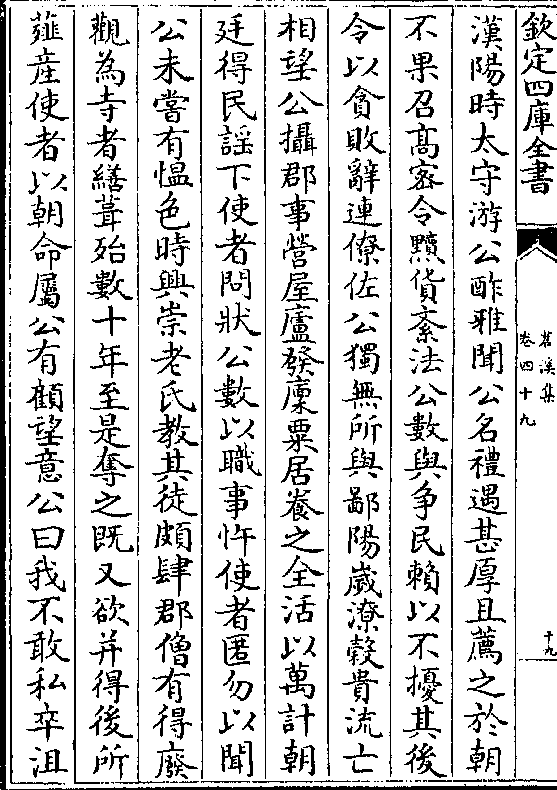 欽定四庫全書
苕溪集
卷四十九
十九
漢陽時太守游公酢雅聞公名禮遇甚厚且薦之於朝
不果召高密令黷貨紊法公數與争民賴以不擾其後
令以貪敗辭連僚佐公獨無所與鄱陽嵗潦穀貴流亡
相望公攝郡事營屋廬發廩粟居養之全活以萬計朝
廷得民謡下使者問狀公數以職事忤使者匿勿以聞
公未嘗有愠色時興崇老氏教其徒頗肆郡僧有得廢
觀為寺者繕葺殆數十年至是奪之既又欲并得後所
蓰産使者以朝命屬公有顧望意公曰我不敢私卒沮